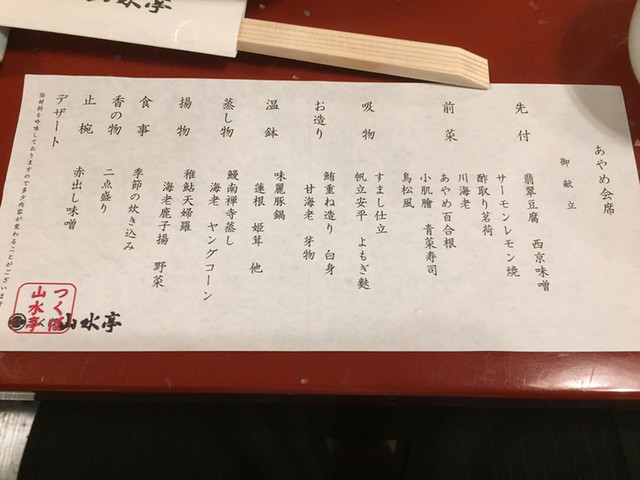 山水亭
あやめ会席
御献立
先付
翡翠豆腐 西京味噌
サーモンレモン焼
前菜
酢取り茗荷
川海老
あやめ百合根
小肌膾 青菜寿司
鳥松風
吸物
すまし仕立
帆立安平 よもぎ麩
お造り
鮪重ね造り 白身
甘海老 芽物
温鉢
味麗豚鍋
蓮根 姫茸 他
蒸し物
鰻南禅寺蒸し
海老 ヤングコーン
揚物
稚鮎天婦羅
海老鹿子揚 野菜
食事
季節の炊き込み
香の物
二点盛り
止椀
赤出し味噌
デザート
※材料を吟味しておりますので多少内容が変わることがございます
つくば
山水亭
山水亭